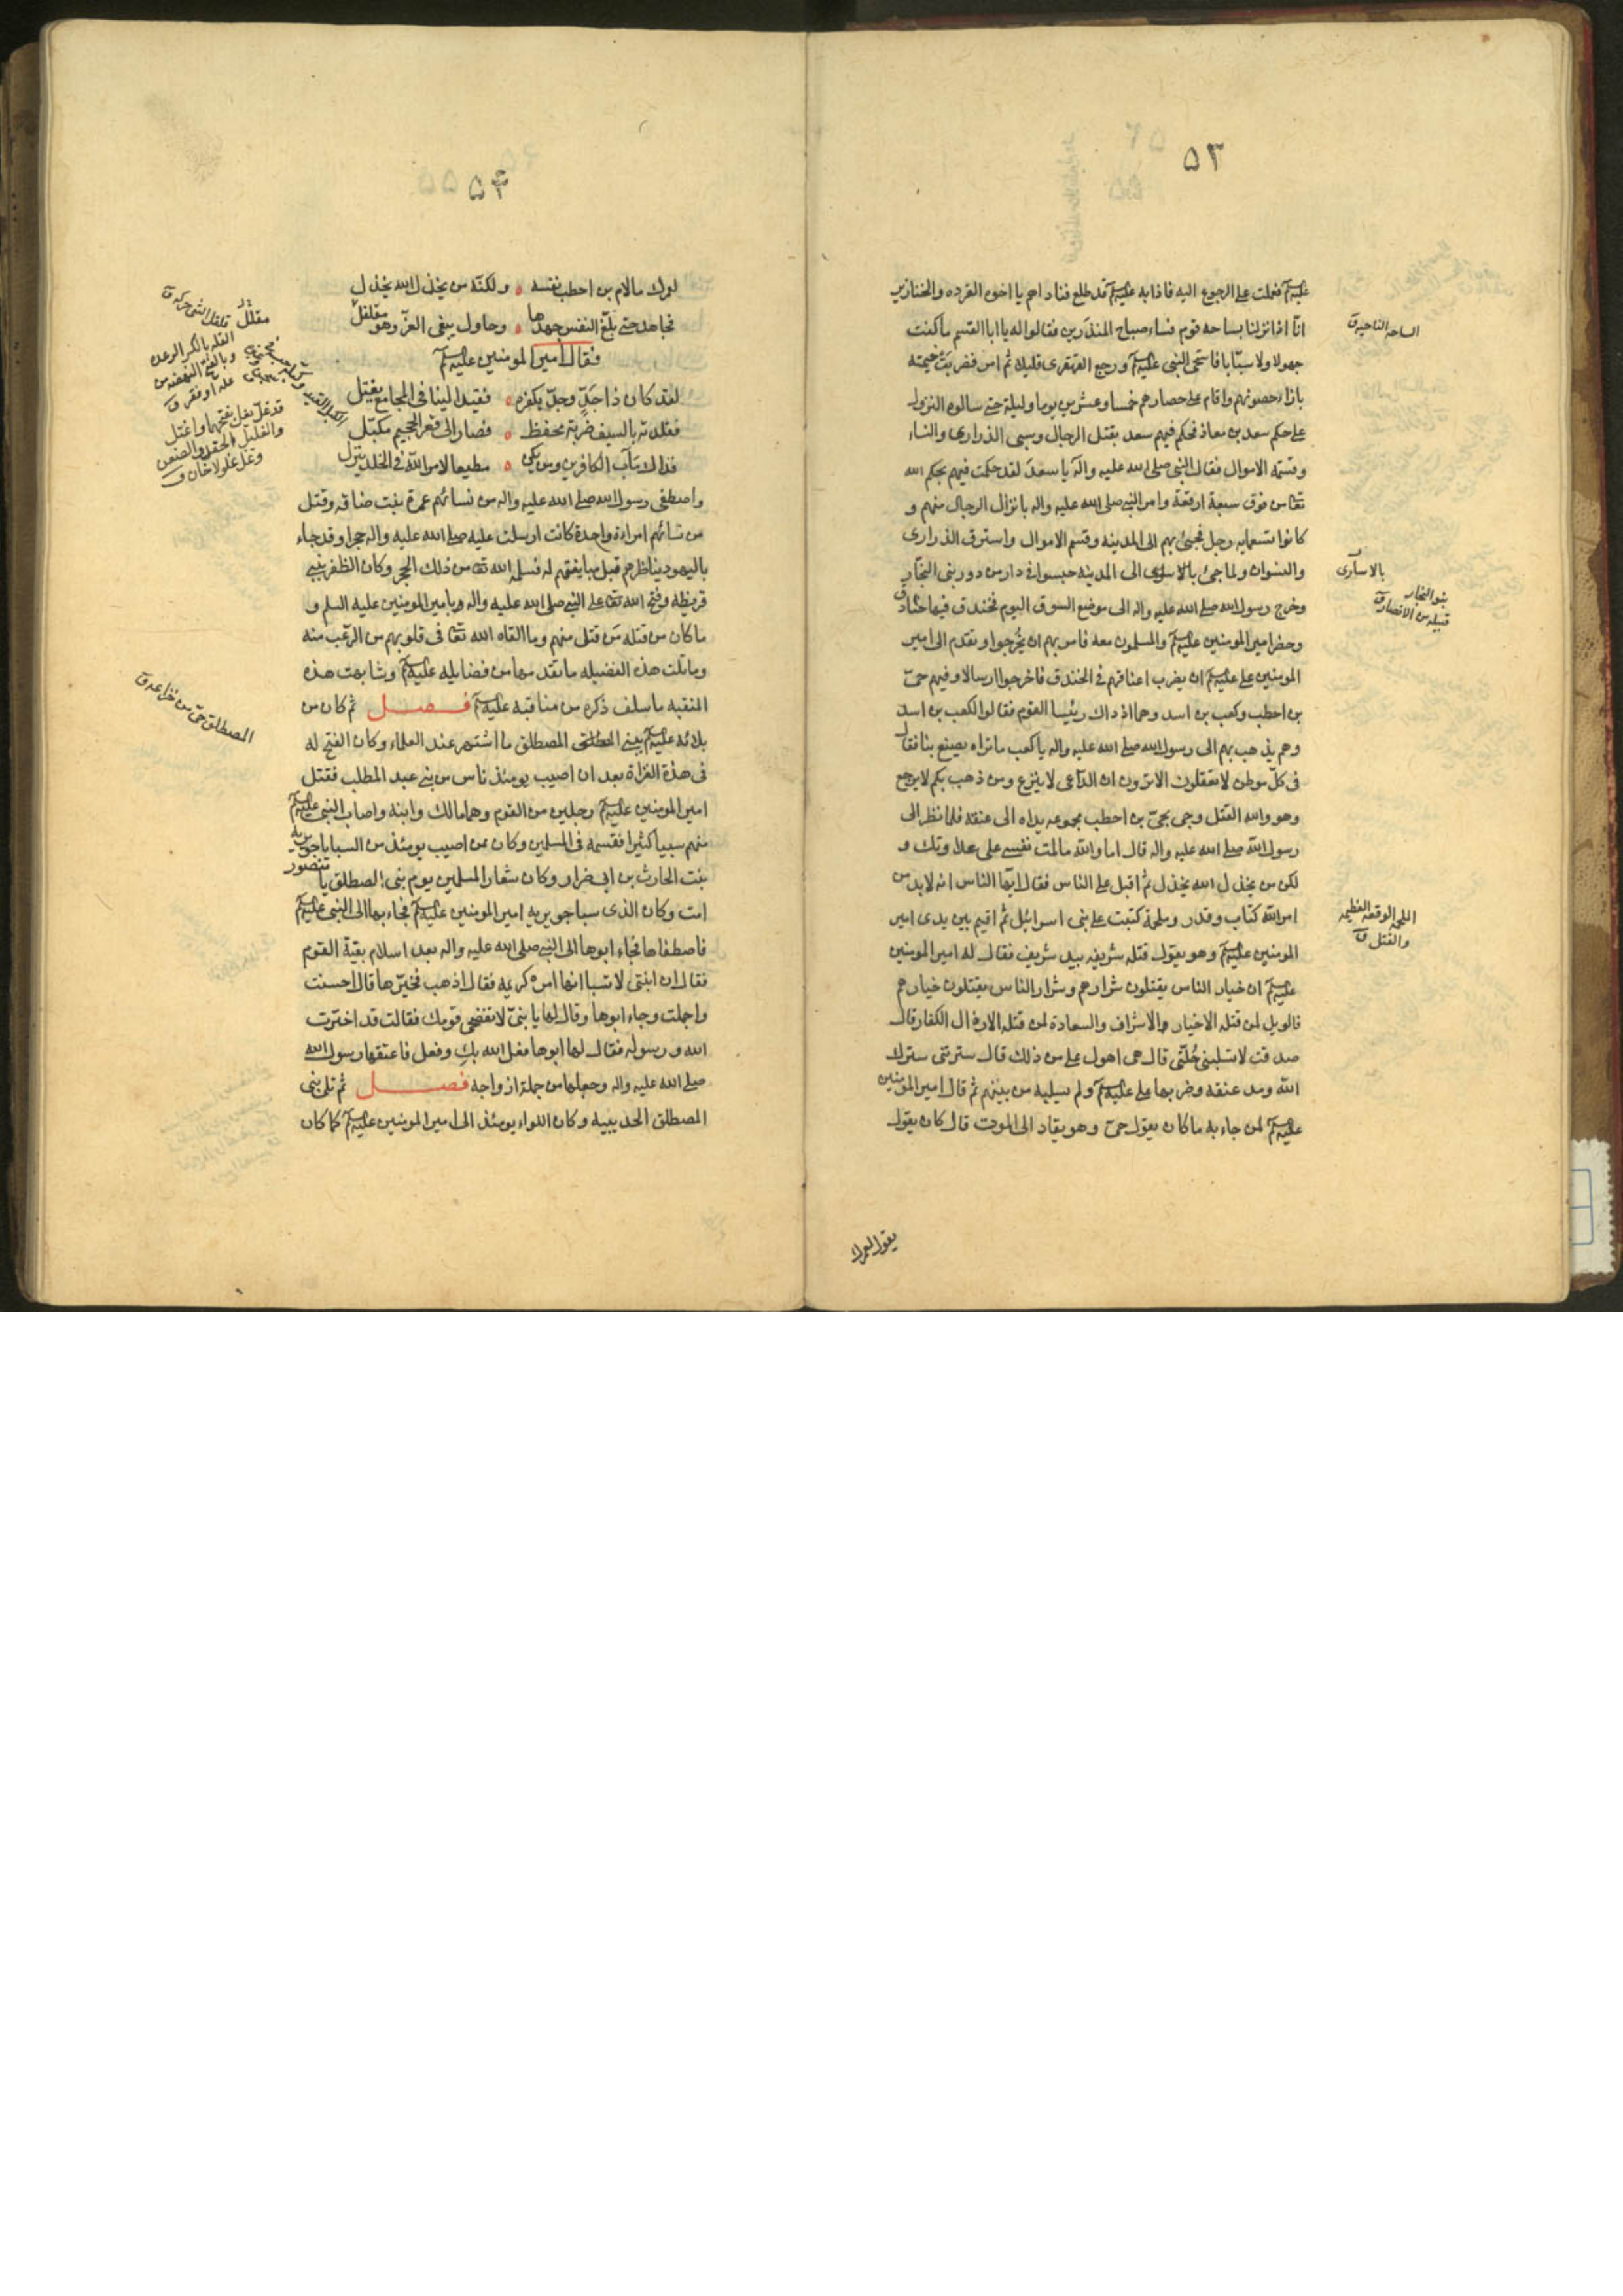 ۵۳
عليه السلم فعملت على الرجوع اليه فاذا به عليه السلم قد طلع فناداهم يا اخوة القرده والخنازير
انّا اذا نزلنا بساحة قوم فساء صباح المنذرين فقالوا له يا ابا القسم ما كنت
جهولا ولا سبّابا فاستحى النبي عليه السلم ورجع القهقرى قليلا ثم امر فضربت خيمته
بازاء حصونهم واقام على حصارهم خمسا وعشرين يوما وليلة حتى سالوه النزول
على حكم سعد بن معاذ فحكم فيهم سعد بقتل الرجال وسبي الذراري والنساء
وقسمة الاموال فقال النبي صلى الله عليه واله يا سعد لقد حكمت فيهم بحكم الله
تعا من فوق سبعة ارقعة وامر النبي صلى الله عليه واله بانزال الرجال منهم و
كانوا تسعمايه رجل فجيئ بهم الى المدينه وقسم الاموال واسترق الذراري
والنسوان ولما جيئ بالاسارى الى المدينه حبسوا في دار من دور بني النجّار
وخرج رسول الله صلى الله عليه واله الى موضع السوق اليوم فخندق فيها خنادق
وحضر امير المومنين عليه السلم والمسلمون معه فامر بهم ان يُخرجوا وتقدم الى امير
المومنين على عليه السلم ان يضرب اعناقهم في الخندق فاخرجوا ارسالا وفيهم حيّ
بن احطب وكعب بن اسد وهما اذ ذاك رئيسا القوم فقالوا لكعب بن اسد
وهم يذهب بهم الى رسول الله صلى الله عليه واله يا كعب ما تراه يصنع بنا فقال
في كلّ موطن لا تعقلون الا ترون ان الدّاعى لا ينزع ومن ذهب بكم لا يرجع
وهو والله القتل وجى بحيّ بن احطب مجموعه يداه الى عنقه فلما نظر الى
رسول الله صلى الله عليه واله قال اما والله ما لمت نفسي على عداوتك و
لكن من يخذل الله يخذل ثم اقبل على الناس فقال ايّها الناس انه لا بد من
امر الله كتاب وقدر وملحمة كتبت على بنى اسرائيل ثم اقيم بين يدى امير
المومنين عليه السلم وهو يقول قتله شريفه بيد شريف فقال له امير المومنين
عليه السلم ان خيار الناس يقتلون شرارهم وشرار الناس يقتلون خيارهم
فالويل لمن قتله الاخيار والاشراف والسعادة لمن قتله الارذال الكفار قال
صدقت لا تسلبني حُلّتى قال هى اهون على من ذلك قال سترتنى سترك
الله ومد عنقه وضربها على عليه السلم ولم يسلبه من بينهم ثم قال امير المومنين
عليه السلم لمن جاء به ما كان يقول حىّ وهو يقاد الى الموت قال كان يقول
يقول لعمرك
الساحه الناحيه ق
بالاسارى
بنو النجار
قبيله من الانصار ق
الملحمه الوقعه العظيمه
والقتل ق
۵۴
لعمرك ما لام بن احطب نفسه ولكنّه من يخذل الله يخذل
فجاهد حتى بلّغ النفس جهدها وحاول يبغى العزّ وهو مقلقل
فقال امير المومنين عليه السلم
لقد كان ذا جَدٍّ وجدّ بكفره فقيد الينا في المجامع يعتل
فقلدته بالسيف ضربة محفظ فصار الى قعر الجحيم مكبّل
فذاك مآب الكافرين ومن يكن مطيعا لامر الله في الخلد ينزل
واصطفى رسول الله صلى الله عليه واله من نسائهم عمرة بنت خناقه وقتل
من نسائهم امراءة واحدة كانت ارسلت عليه صلى الله عليه واله حجرا وقد جاء
باليهود يناظرهم قبل مبايعتهم له فسلمه الله تعا من ذلك الحجر وكان الظفر ببني
قريظه وفتح الله تعا على النبي صلى الله عليه واله وبامير المومنين عليه السلم و
ما كان من قتله من قتل منهم وما القاه الله تعا في قلوبهم من الرّعب منه
وماثلت هذه الفضيله ما تقدمها من فضايله عليه السلم وشابهت هذه
المنقبه ما سلف ذكره من مناقبه عليه السلم فصل ثم كان من
بلائه عليه السلم ببني المصطلق ما اشتهر عند العلماء وكان الفتح له
فى هذة الغزاة بعد ان اصيب يومئذ ناس من بنى عبد المطلب فقتل
امير المومنين عليه السلم رجلين من القوم وهما مالك وابنه واصاب النبي عليه السلم
منهم سبيا كثيرا فقسمه فى المسلمين وكان ممن اصيب يومئذ من السبايا جويريه
بنت الحارث بن ابى ضرار وكان شعار المسلمين يوم بنى المصطلق يا منصور
امت وكان الذى سبا جويريه امير المومنين عليه السلم فجاء بها الى النبي عليه السلم
فاصطفاها فجاء ابوها الى النبي صلى الله عليه واله بعد اسلام بقيّة القوم
فقال ان ابنتى لا تسبا انها امرءه كريمه فقال اذهب فخيّرها قال احسنت
واجملت وجاء ابوها وقال لها يا بنيّ لا تفضحى قومك فقالت قد اخترت
الله ورسوله فقال لها ابوها فعل الله بك وفعل فاعتقها رسول الله
صلى الله عليه واله وجعلها من جملة ازواجه فصل ثم تلى بنى
المصطلق الحديبيه وكان اللواء يومئذ الى امير المومنين عليه السلم كما كان
المصطلق حىّ من خزاعه ق